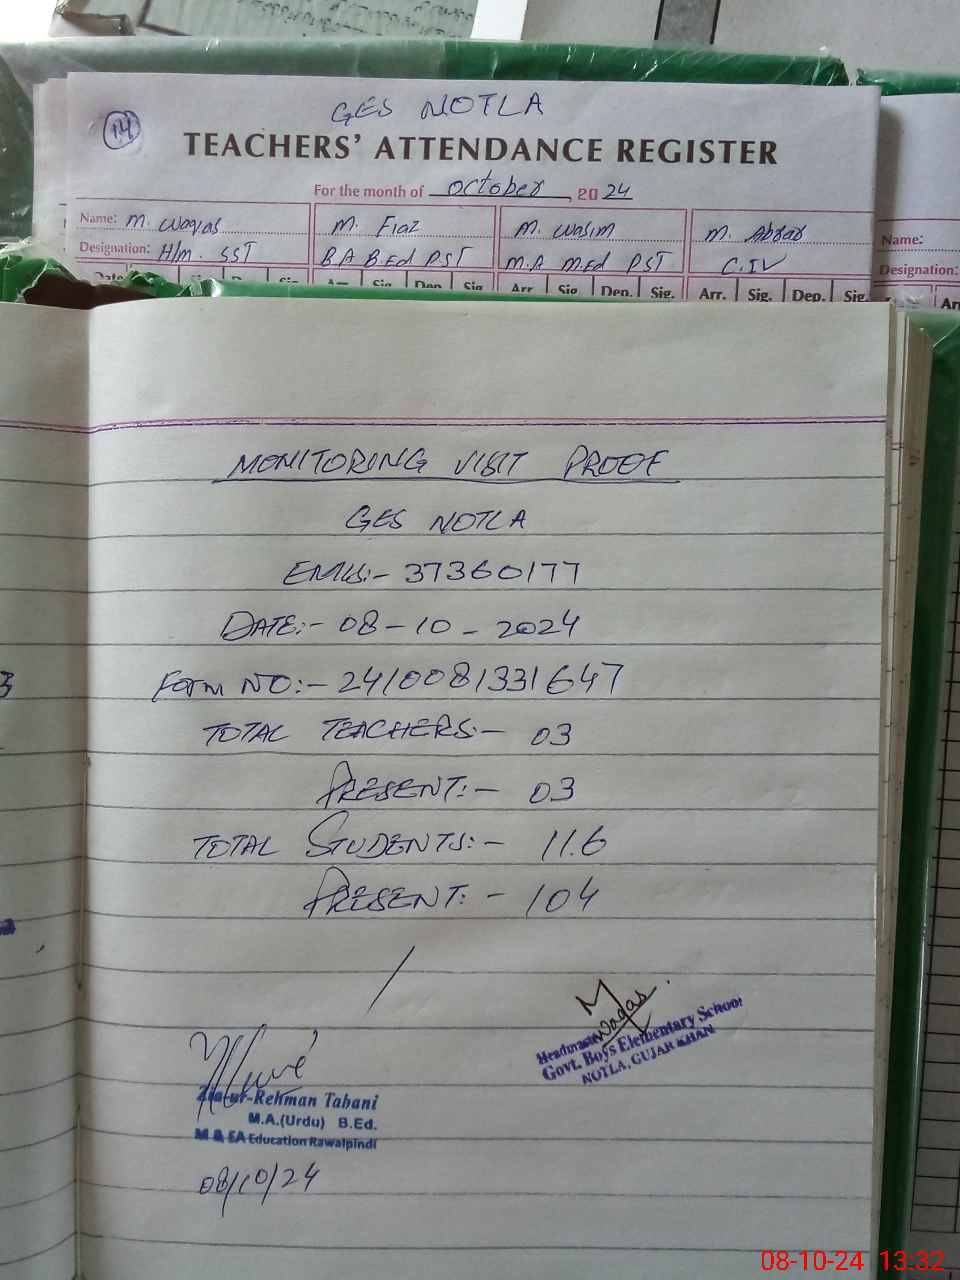 14
GES NOTLA
TEACHERS' ATTENDANCE REGISTER
For the month of October, 2024
Name: M. Waqas M. Fiaz M. Wasim M. Abrar Name:
Designation: H/m. SST B.A B.Ed PST M.A M.Ed PST C.IV Designation:
Date Sig. Arr. Sig. Dep. Sig. Arr. Sig. Dep. Sig. Arr. Sig. Dep. Sig. Arr
MONITORING VISIT PROOF
GES NOTLA
EMIS:- 37360177
DATE:- 08-10-2024
Form NO:- 2410081331647
TOTAL TEACHERS:- 03
PRESENT:- 03
TOTAL STUDENTS:- 11.6
PRESENT:- 104
Waqas
Headmaster
Govt. Boys Elementary School
NOTLA, GUJAR KHAN
Zia-ur-Rehman Tabani
M.A.(Urdu) B.Ed.
M & EA Education Rawalpindi
08/10/24
08-10-24 13:32